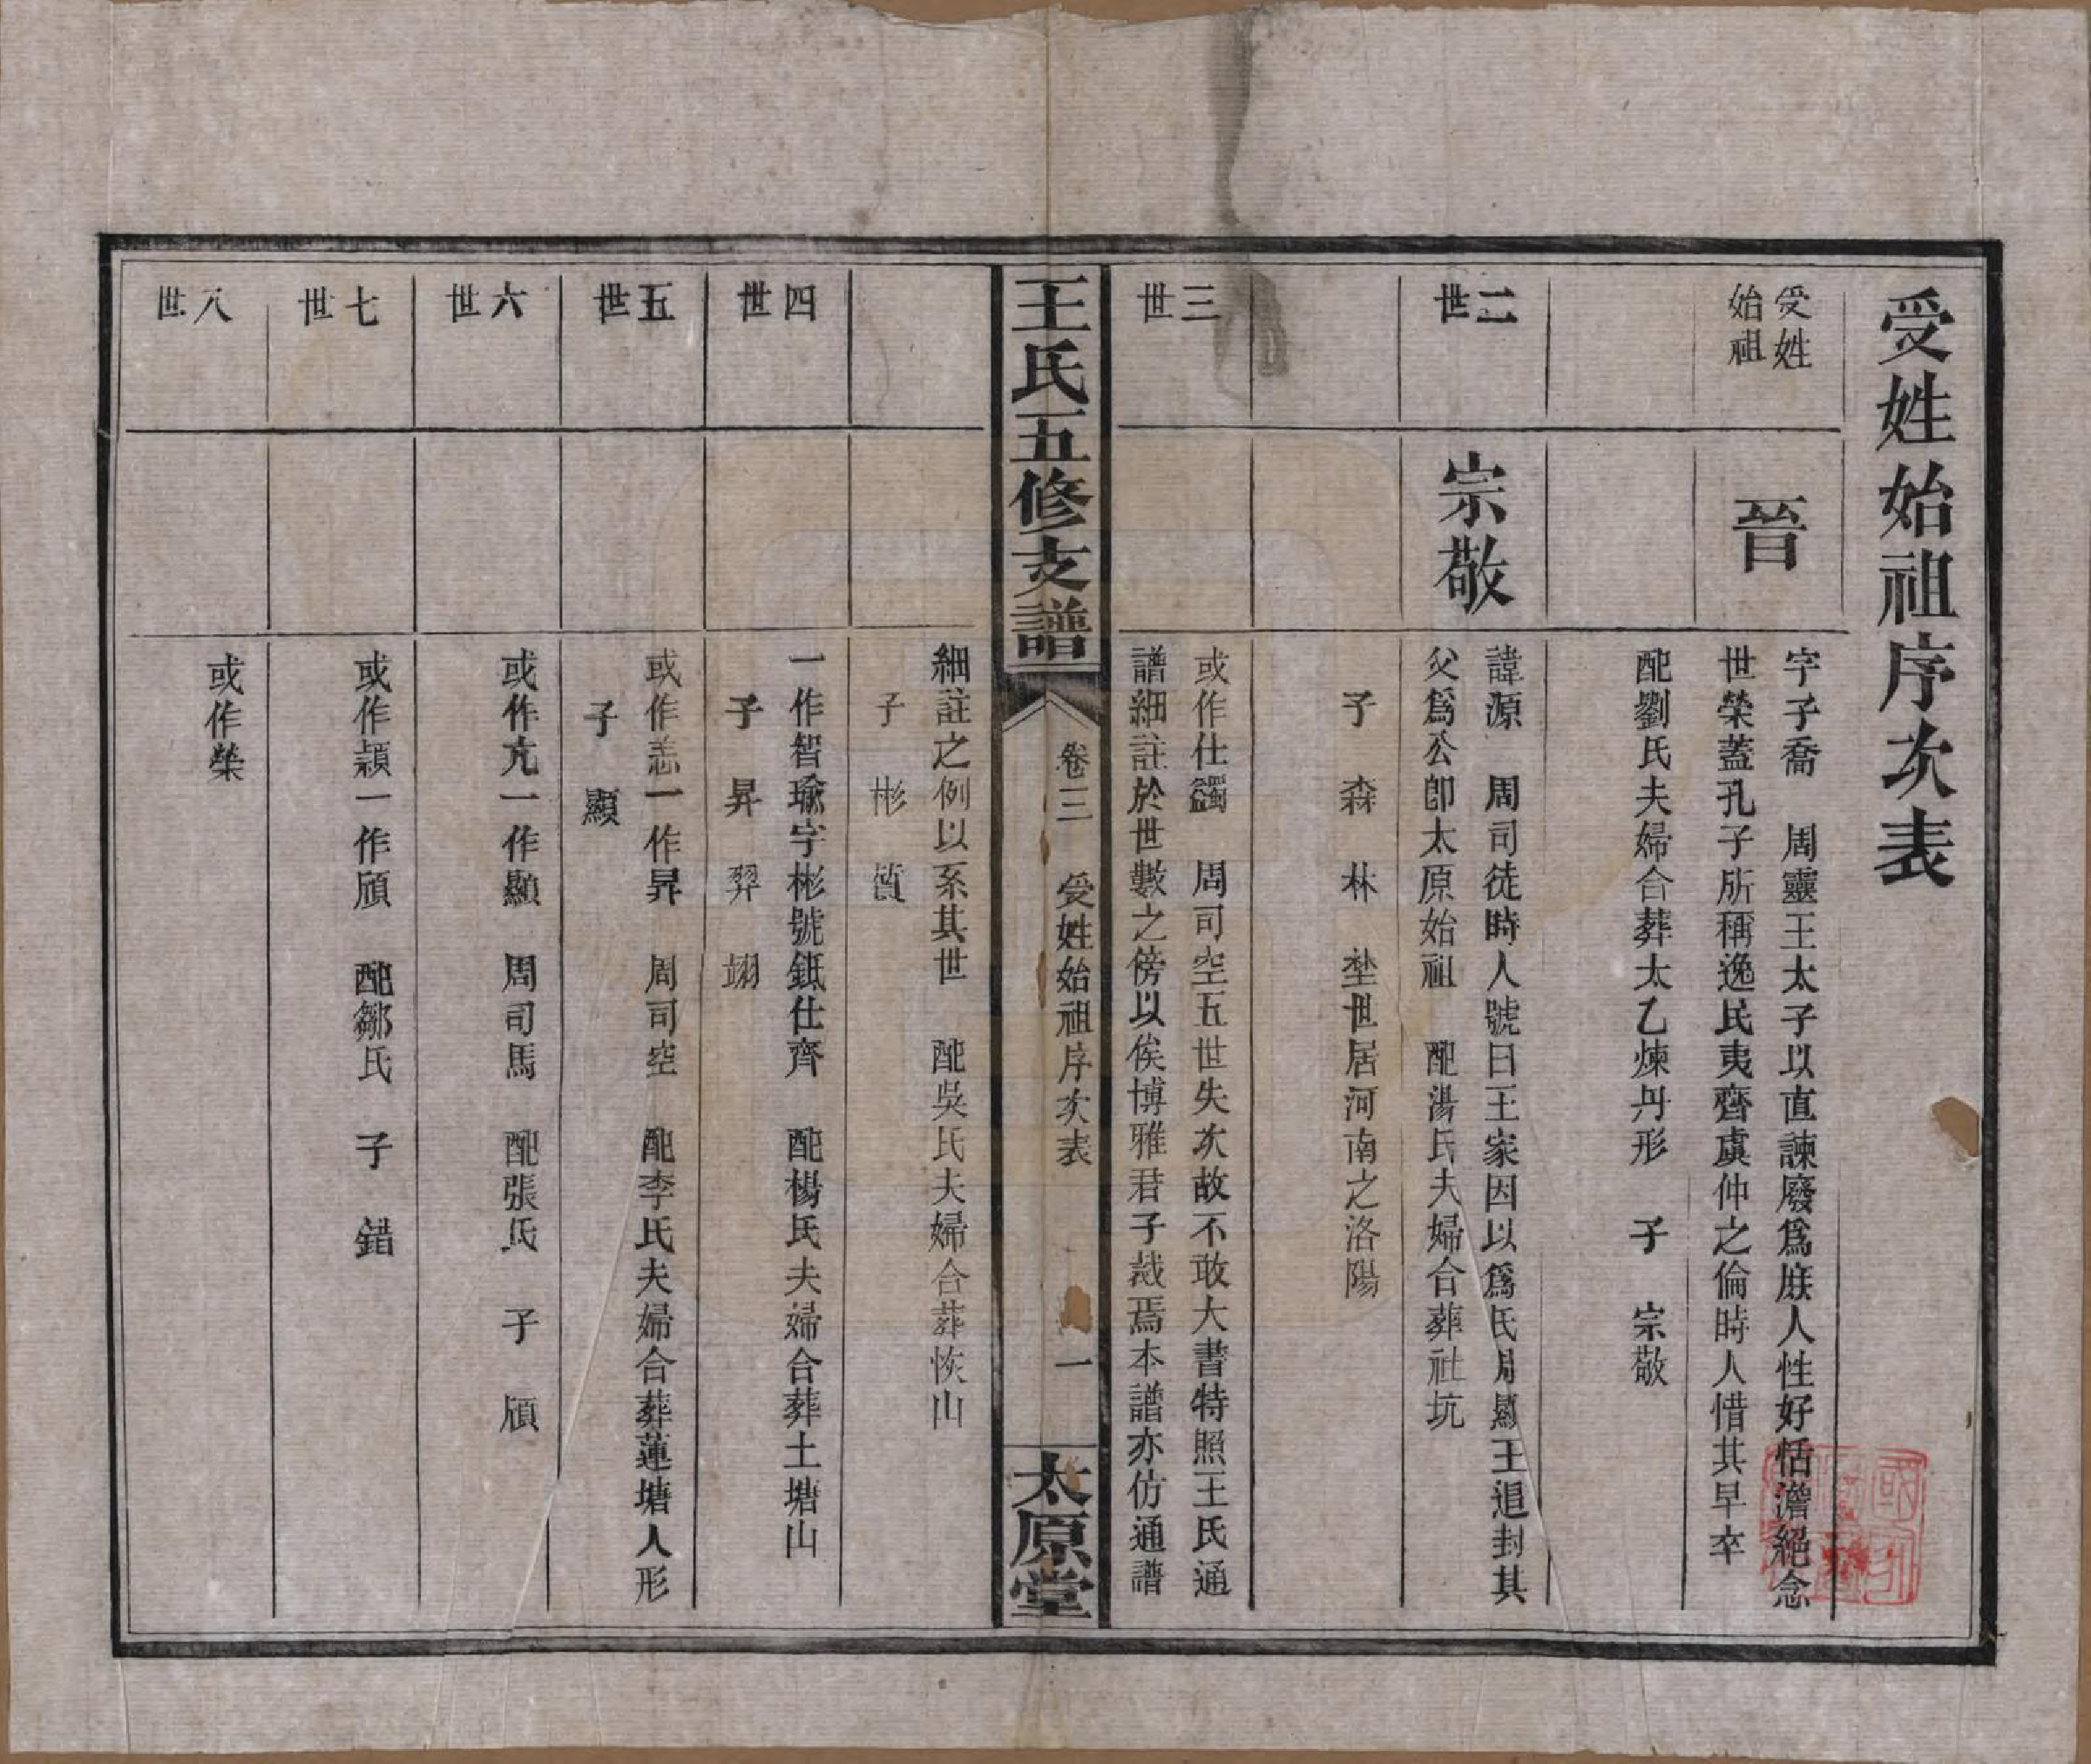 受姓始祖序次表
受姓
始祖
晉
字子喬　周靈王太子以直諫廢爲庶人性好恬澹絕念
世榮蓋孔子所稱逸民夷齊虞仲之倫時人惜其早卒
配劉氏夫婦合葬太乙煉丹形　子　宗敬
二世
宗敬
諱源　周司徒時人號曰王家因以爲氏周顯王追封其
父爲公卽太原始祖　配湯氏夫婦合葬社坑
子　森　林　埜世居河南之洛陽
三世
或作仕蠲　周司空五世失次故不敢大書特照王氏通
譜細註於世數之傍以俟博雅君子裁焉本譜亦仿通譜
王氏五修支譜
卷三　受姓始祖序次表
一
太原堂
細註之例以系其世　配吳氏夫婦合葬恢山
子　彬　質
四世
一作智瑜字彬號鉦仕齊　配楊氏夫婦合葬土塘山
子　昇　羿　翊
五世
或作恚一作昇　周司空　配李氏夫婦合葬蓮塘人形
子　顯
六世
或作亢一作顯　周司馬　配張氏　子　頎
七世
或作穎一作頎　配鄒氏　子　錯
八世
或作榮